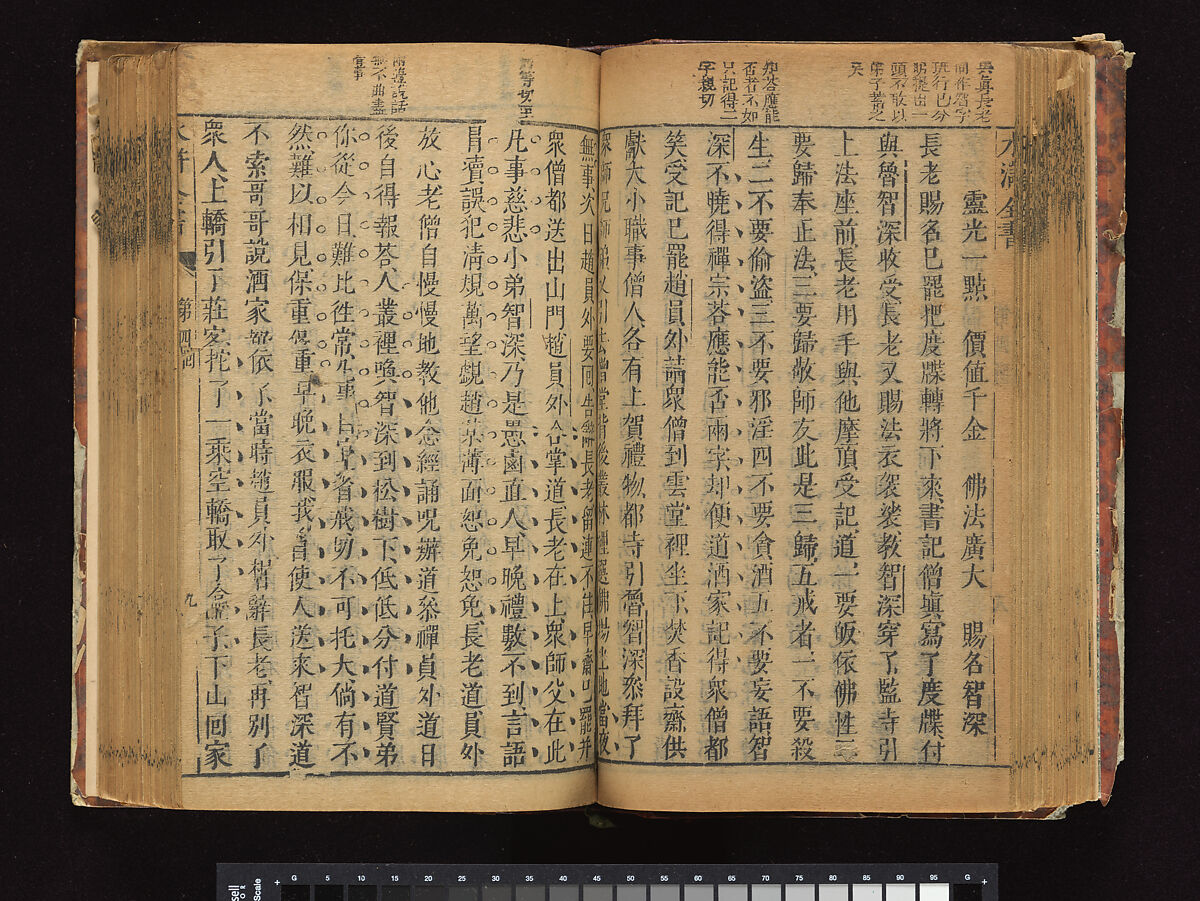 與眞長老
同作智字
班行已分
明提出一
頭不敢以
弟子蓄之
矣
矩荅應能
否者不如
只記得二
字親切
靈光一點 價值千金 佛法廣大 賜名智深
長老賜名已罷把度牒轉將下來書記僧塡寫了度牒付
與魯智深收受長老又賜法衣袈裟教智深穿了監寺引
上法座前長老用手與他摩頂受記道一要皈依佛性二
要歸奉正法三要歸敬師友此是三歸五戒者一不要殺
生二不要偷盜三不要邪淫四不要貪酒五不要妄語智
深不曉得禪宗荅應能否兩字却便道洒家記得衆僧都
笑受記已罷趙員外請衆僧到雲堂裡坐下焚香設齋供
獻大小職事僧人各有上賀禮物都寺引魯智深叅拜了
衆師兄師弟又引去僧堂背後叢林裡選佛場坐地當夜
無事次日趙員外要回告辭長老留連不住早齋已罷并
衆僧都送出山門趙員外合掌道長老在上衆師父在此
凡事慈悲小弟智深乃是愚鹵直人早晚禮數不到言語
冒瀆誤犯清規萬望覷趙某薄面恕免恕免長老道員外
放心老僧自慢慢地教他念經誦呪辦道叅禪員外道日
後自得報荅人叢裡喚智深到松樹下低低分付道賢弟
你從今日難比徃常凡事自宜省戒切不可托大倘有不
然難以相見保重保重早晚衣服我自使人送來智深道
不索哥哥說洒家都依了當時趙員外相辭長老再別了
衆人上轎引下莊客抬了一乘空轎取了盒子下山回家
兩邊說話
無不曲盡
水滸全書
第四回
九